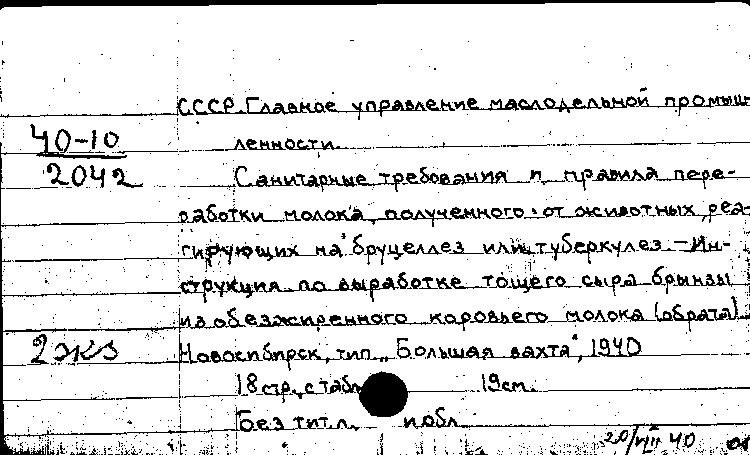 СССР. Главное управление маслодельной промыш-
40-10
ленности.
2042
Санитарные требования и правила пере-
работки молока, полученного от животных, реа-
гирующих на бруцеллез или туберкулез. — Ин-
струкция по выработке тощего сыра брынзы
из обезжиренного коровьего молока (обрата)
2 экз
Новосибирск, тип. „Большая вахта", 1940
18 стр., с табл. 19 см.
Без тит. л. и обл.
20/VIII 40